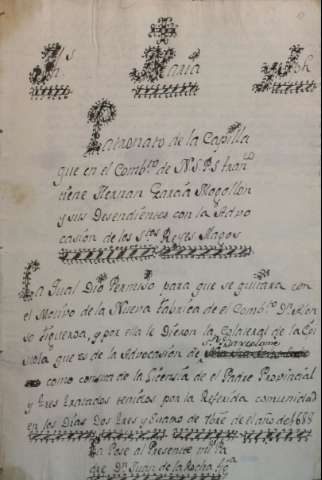 Jhs Maria Joh
Patronato de la Capilla
que en el Combto de N.S.P.S franco
tiene Hernan Garcia Mogollon
y sus Desendientes con la Advo
casion de los Stos Reyes Magos
La qual Dio Permiso para que se quitara con
el Motivo de la Nueva Fabrica de el Combto Dn Alon
so Figueroa, y por ella le Dieron la Colateral de la
que es de la Advocasion de Sn Bartolome
como consta de la Lisensia de el Padre Provincial
y tres tratados tenidos por la Referida comunidad
en los Dias Dos Tres y Quatro de 1bre de el año de 1688
La Pose al Presente mi Pa
dre Dn Juan de la Rocha